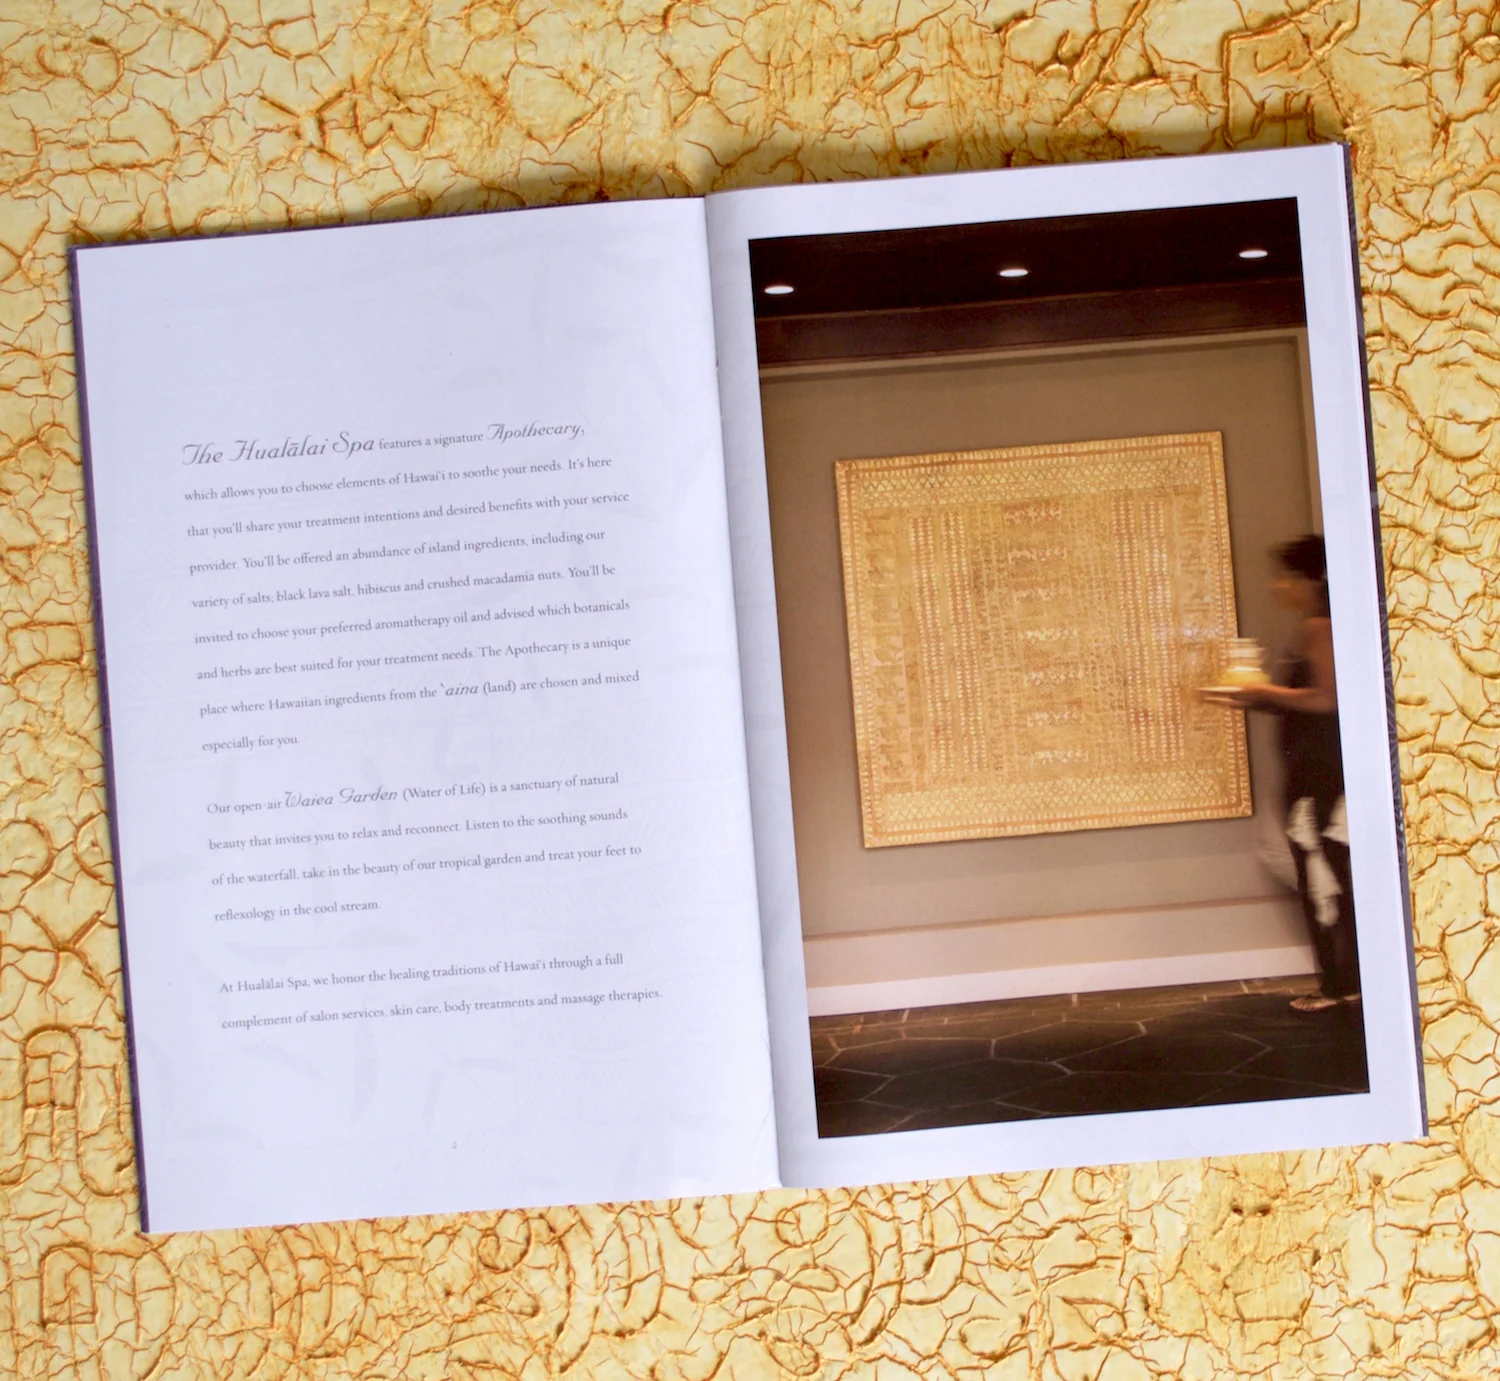 The Hualālai Spa features a signature Apothecary,
which allows you to choose elements of Hawai'i to soothe your needs. It's here
that you'll share your treatment intentions and desired benefits with your service
provider. You'll be offered an abundance of island ingredients, including our
variety of salts, black lava salt, hibiscus and crushed macadamia nuts. You'll be
invited to choose your preferred aromatherapy oil and advised which botanicals
and herbs are best suited for your treatment needs. The Apothecary is a unique
place where Hawaiian ingredients from the `aina (land) are chosen and mixed
especially for you.
Our open-air Waiea Garden (Water of Life) is a sanctuary of natural
beauty that invites you to relax and reconnect. Listen to the soothing sounds
of the waterfall, take in the beauty of our tropical garden and treat your feet to
reflexology in the cool stream.
At Hualālai Spa, we honor the healing traditions of Hawai'i through a full
complement of salon services, skin care, body treatments and massage therapies.
2